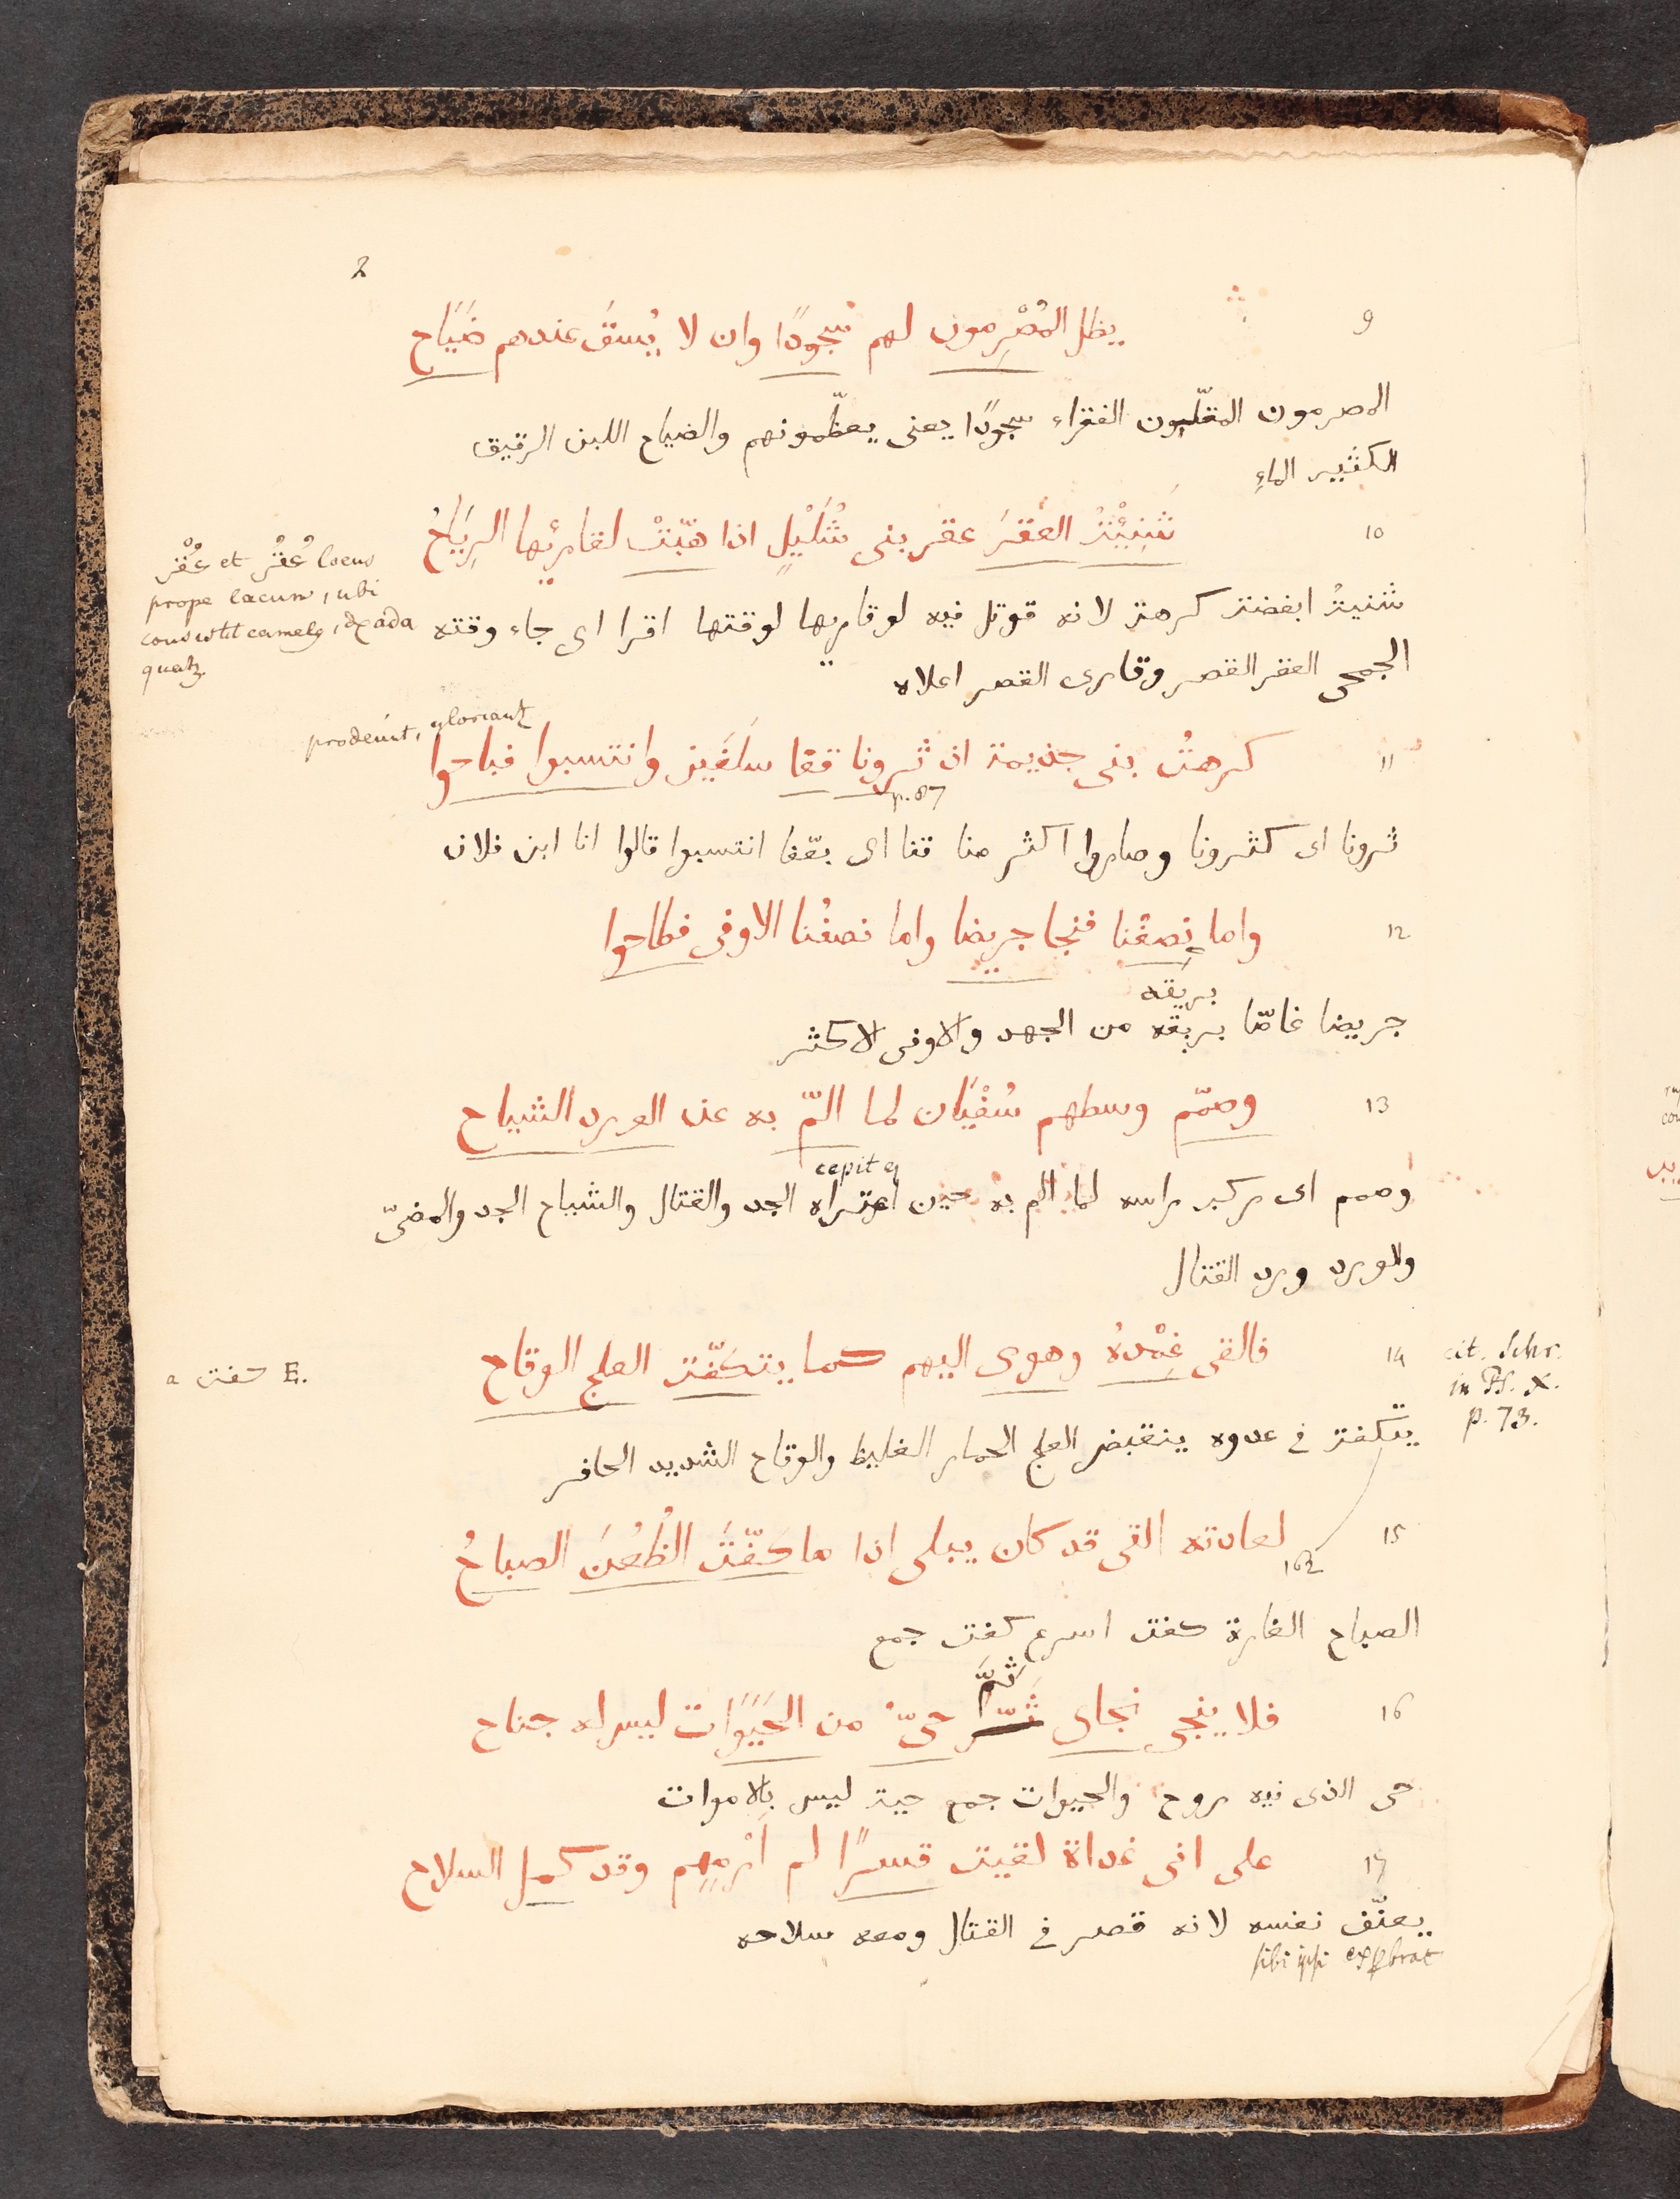 2
9 يظل المُصْرِمون لهم سُجودًا وان لا يُسقَ عندهم ضَيَاح
المصرمون المقلّون الفقراء سجودًا يعنى يعظّمونهم والضياح اللبن الرقيق
الكثير الماءِ
10 شَنِئْتُ العَقْرَ عقر بنى شُلَيْلٍ اذا هَبّتْ لقارئها الرِيَاحُ
عُقْر et عُقُر locus
prope lacum, ubi
consistit camelg,
شنيتُ ابغضتُ كرهتُ لانه قوتل فيه لوقاريها لوقتها اقرا اى جاء وقته
الجمحى العقر القصر وقارى القصر اعلاه
prodeunt, gloriant
11 كرهتُ بنى جذيمة اذ ثرونا قفا سلفَين وانتسبوا فباحوا
p. 87
ثرونا اى كثرونا وصاروا اكثر منا قفا اى بقفا انتسبوا قالوا انا ابن فلان
12 واما نِصفُنا فنجا جريضا واما نصفُنا الاوفى فطاحوا
بريقه
جريضا غاصّا بريقه من الجهد والاوفى الاكثر
13 وصمّم وسطهم سُفْيَان لما المّ به عن الورد الشياح
cepit
وصمم اى ركب راسه لما الم به حين اعتراه الجد والقتال والشياح الجد والمضىّ
والورد ورد القتال
14 فالقى غِمْدهُ وهوى اليهم كما يتكفّت العلج الوقاح
cit. Schr.
in Ps. X.
p. 73.
a كفت E.
يتكفت فى عدوه ينقبض العلج الحمار الغليظ والوقاح الشديد الحافر
15 لعادته التى قد كان يبلى اذا ما كفّتَ الظُعُنَ الصباحُ
162
الصباح الغارة كفت اسرع كفت جمع
ثَمَّ
16 فلا ينجى نجاى ثَمّ حىّ من الحَيَوَات ليس له جناح
حى الذى فيه روح والحيوات جمع حية ليس بالاموات
17 على انى غداة لقيت قسرًا لم اَرْمِهِم وقد كمل السلاح
يعنّف نفسه لانه قصر فى القتال ومعه سلاحه
sibi ipsi exprobrat